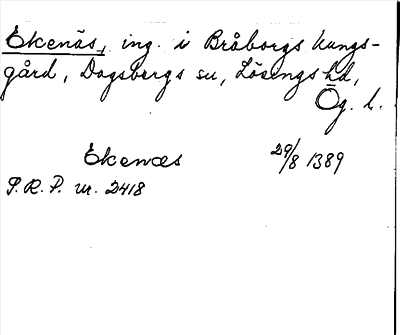 Ekenäs, ing. i Bråborgs kungs-
gård, Dagsbergs sn, Lösings hd,
Ög. l.
Ekenæs 29/8 1389
P.R.P. nr. 2418